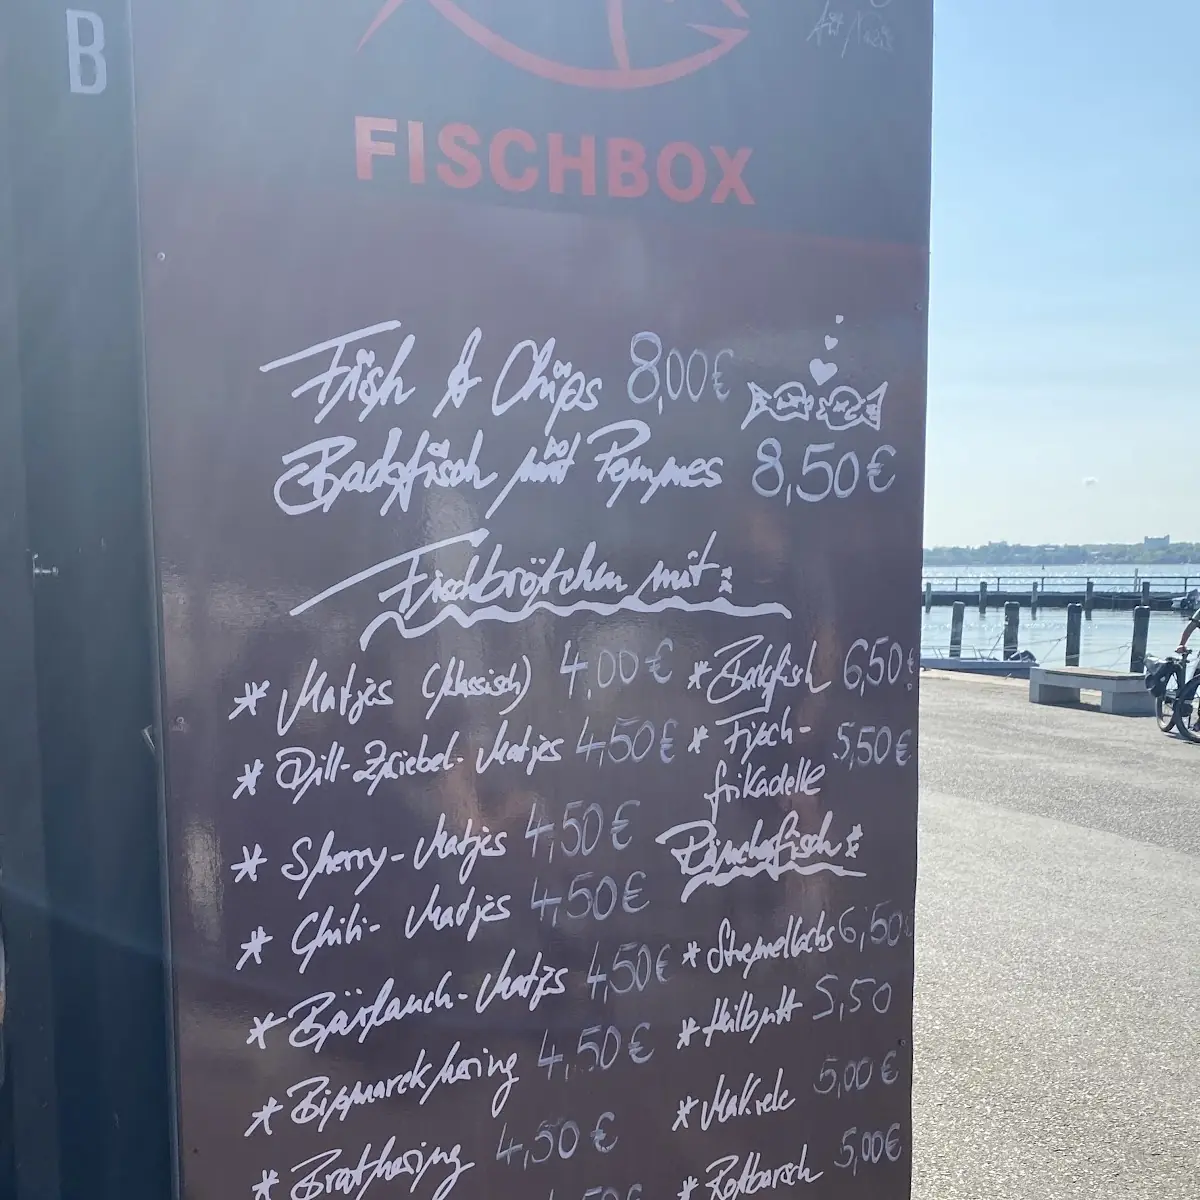 B
FISCHBOX
Fish & Chips 8,00€
Backfisch mit Pommes 8,50€
Fischbrötchen mit:
* Matjes (klassisch) 4,00€
* Dill-Zwiebel-Matjes 4,50€
* Sherry-Matjes 4,50€
* Chili-Matjes 4,50€
* Bärlauch-Matjes 4,50€
* Bismarckhering 4,50€
* Brathering 4,50€
4,50€
* Backfisch 6,50€
* Fisch-
frikadelle 5,50€
Räucherfisch:
* Stremellachs 6,50
* Heilbutt 5,50
* Makrele 5,00€
* Rotbarsch 5,00€